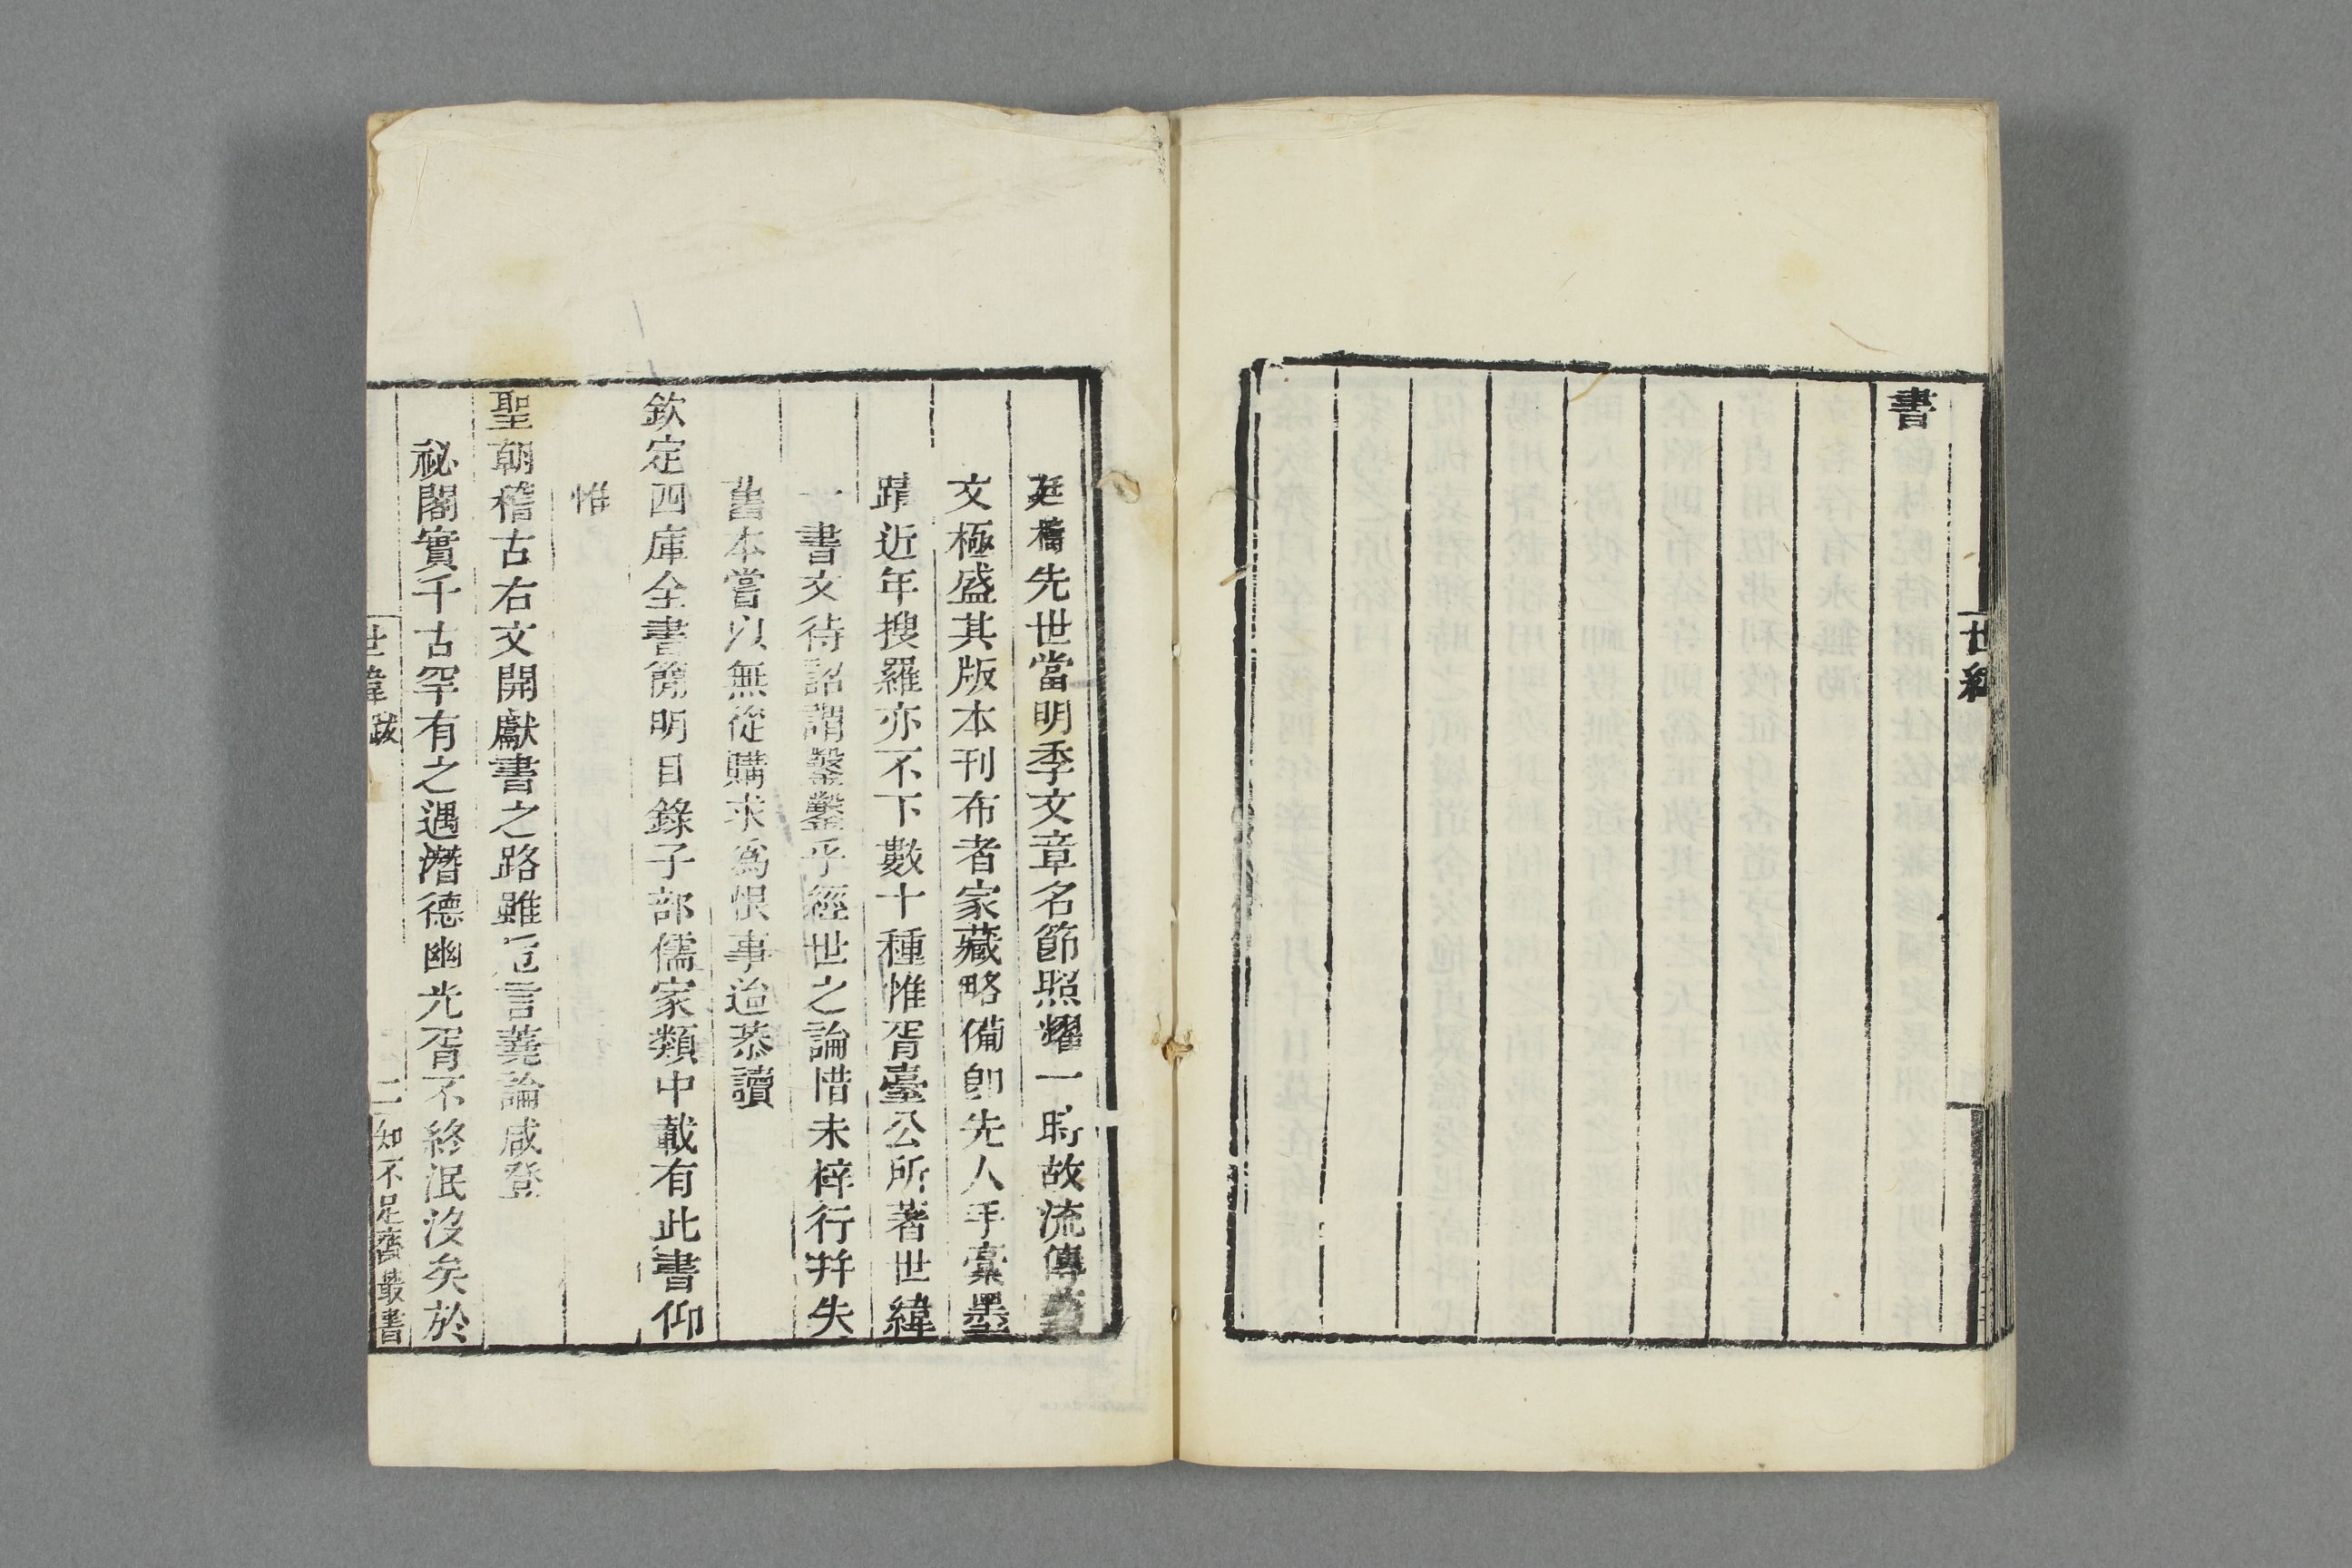 書
世緯
廷檮先世當明季文章名節照耀一時故流傳
文極盛其版本刊布者家藏略備卽先人手稾墨
蹟近年搜羅亦不下數十種惟胥臺公所著世緯
一書文待詔謂鑿鑿乎經世之論惜未梓行并失
舊本嘗以無從購求為恨事迨恭讀
欽定四庫全書簡明目錄子部儒家類中載有此書仰
惟
聖朝稽古右文開獻書之路雖卮言蕘論咸登
祕閣實千古罕有之遇潛德幽光胥不終泯沒矣於
世緯跋
二
知不足齋叢書